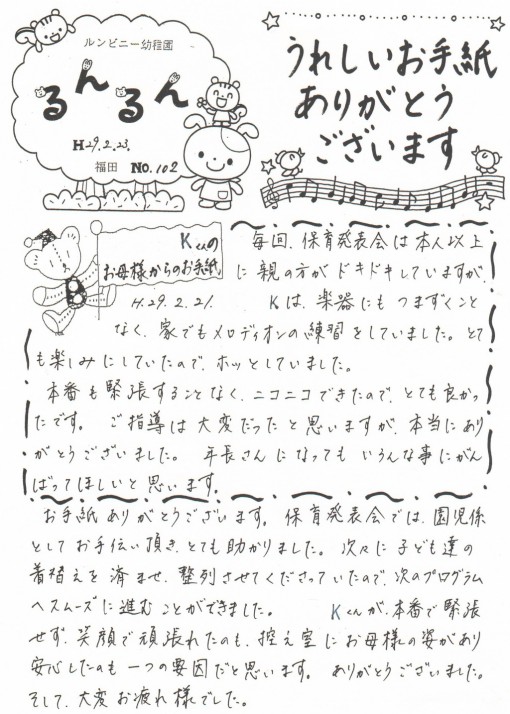 ルンビニー幼稚園
るんるん
H29.2.23.
福田 No.102
うれしいお手紙
ありがとう
ございます
Kくんの
お母様からのお手紙
H.29.2.21.
毎回、保育発表会は本人以上
に親の方がドキドキしていますが、
Kは、楽器にもつまずくこと
なく、家でもメロディオンの練習をしていました。とて
も楽しみにしていたので、ホッとしていました。
本番も緊張することなく、ニコニコできたので、とても良かっ
たです。ご指導は大変だったと思いますが、本当にあり
がとうございました。年長さんになってもいろんな事にがん
ばってほしいと思います。
お手紙ありがとうございます。保育発表会では、園児係
としてお手伝い頂き、とても助かりました。次々に子ども達の
着替えを済ませ、整列させてくださっていたので、次のプログラム
へスムーズに進むことができました。 Kくんが、本番で緊張
せず、笑顔で頑張れたのも、控え室にお母様の姿があり
安心したのも一つの要因だと思います。ありがとうございました。
そして、大変お疲れ様でした。